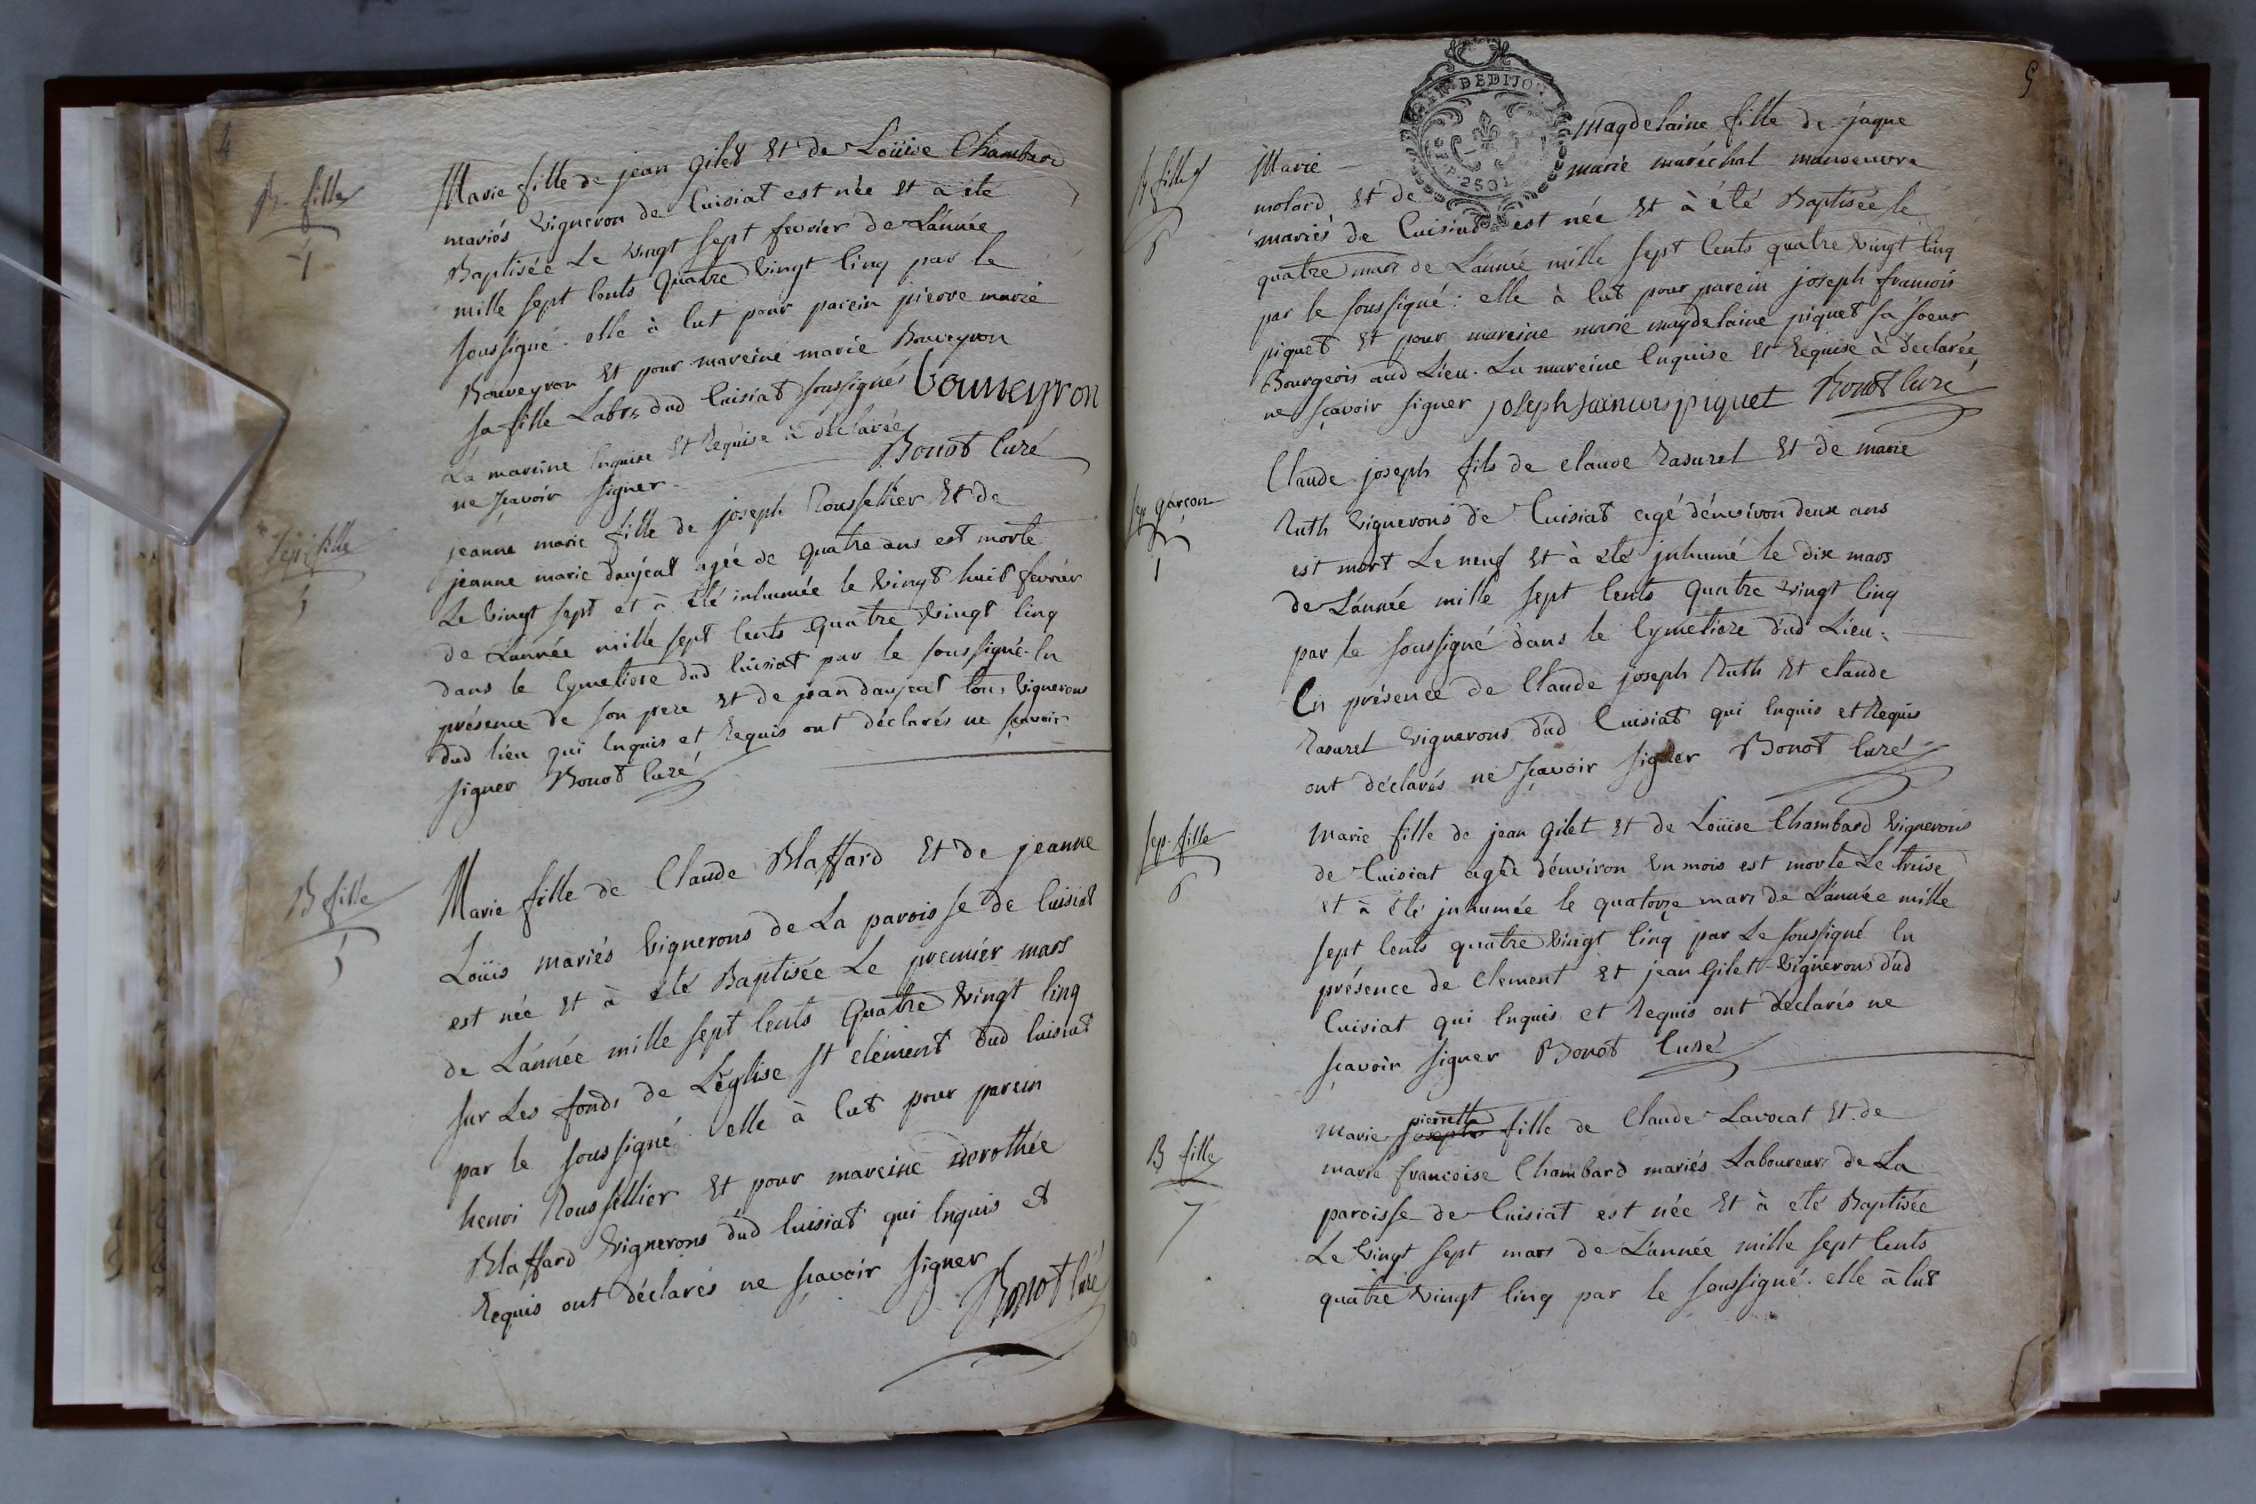 4
B. fille
4
Marie fille de jean gilet et de Loüise Chambard
mariés vigneron de Cuisiat est née et à été
Baptisée Le vingt sept fevrier de L'année
mille sept Cents Quatre vingt Cinq par le
soussigné. elle à Eut pour parein pierre marie
Bouveyron et pour mareine marie Bouveyron
sa fille Labrs dud Cuisiat soussignés bouveyron
La mareine Enquise et Requise à déclarée
ne sçavoir signer. Bonot Curé
sep. fille
5
jeanne marie fille de joseph Roussellier et de
jeanne marie daujeat agée de quatre ans est morte
Le vingt sept et à été inhumée le vingt huit fevrier
de L'année mille sept Cents Quatre vingt Cinq
dans le Cymetiere dud Cuisiat par le soussigné. En
présence de son pere et de jean daujeat tous vignerons
dud lieu qui Enquis et Requis ont déclarés ne sçavoir
signer Bonot Curé
B fille
5
Marie fille de Claude Blaffard et de jeanne
Loüis mariés vignerons de La paroisse de Cuisiat
est née et à été Baptisée Le premier mars
de L'année mille sept Cents Quatre vingt Cinq
sur Les fonds de L'église st clément dud Cuisiat
par le soussigné. elle à Eut pour parein
henri Roussellier et pour mareine dorothée
Blaffard vignerons dud Cuisiat qui Enquis et
Requis ont déclarés ne sçavoir signer
Bonot Curé
5
GEN. DE DIJON
2 SOLS
B fille
6
Marie magdelaine fille de jaque
molard et de marie maréchal manoeuvre
mariés de Cuisiat est née et à été Baptisée le
quatre mars de L'année mille sept Cents quatre vingt Cinq
par le soussigné: elle à Eut pour parein joseph francois
piquet et pour mareine marie magdelaine piquet sa soeur
Bourgeois aud Lieu. La mareine Enquise et Requise à déclarée
ne sçavoir signer joseph francois piquet Bonot Curé
sep garçon
Claude joseph fils de claude Rasurel et de marie
Ruth vignerons de Cuisiat agé d'énviron deux ans
est mort Le neuf et à été juhumé le dix mars
de L'année mille sept Cents Quatre vingt Cinq
par le soussigné dans le Cymetiere dud Lieu.
En présence de Claude joseph Ruth et claude
Rasurel vignerons dud Cuisiat qui Enquis et Requis
ont déclarés ne sçavoir signer Bonot Curé
sep. fille
6
Marie fille de jean Gilet et de Loüise Chambard vignerons
de Cuisiat agée d'énviron un mois est morte Le treise
et à été juhumée le quatorze mars de L'année mille
sept Cents quatre vingt Cinq par Le soussigné En
présence de Clement et jean Gilet vignerons dud
Cuisiat qui Enquis et Requis ont déclarés ne
sçavoir signer Bonot Curé
B fille
7
pierrette
Marie josephe fille de Claude Lavocat et de
marie francoise Chambard mariés Laboureurs de La
paroisse de Cuisiat est née et à été Baptisée
Le vingt sept mars de L'année mille sept Cents
quatre vingt Cinq par le soussigné. elle à Eut